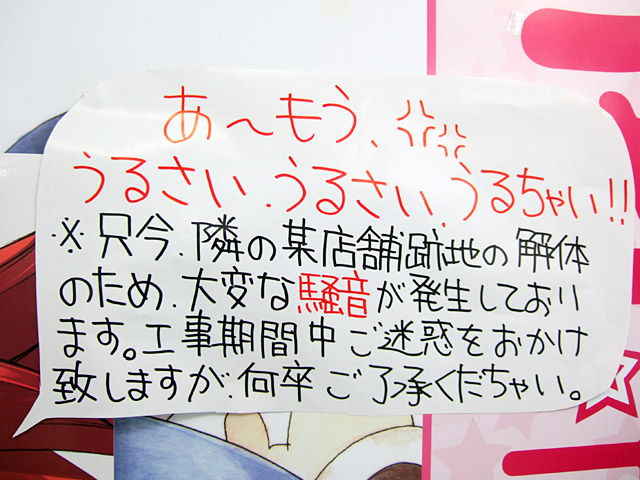 あ〜もう、
うるさい、うるさい、うるちゃい!!
※只今、隣の某店舗跡地の解体
のため、大変な騒音が発生しており
ます。工事期間中ご迷惑をおかけ
致しますが、何卒ご了承くだちゃい。